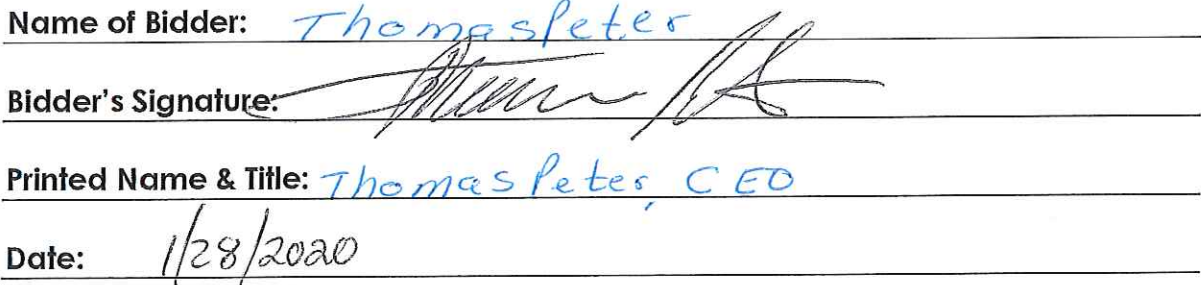 Name of Bidder: Thomas Peter
Bidder's Signature:
Printed Name & Title: Thomas Peter, CEO
Date: 1/28/2020